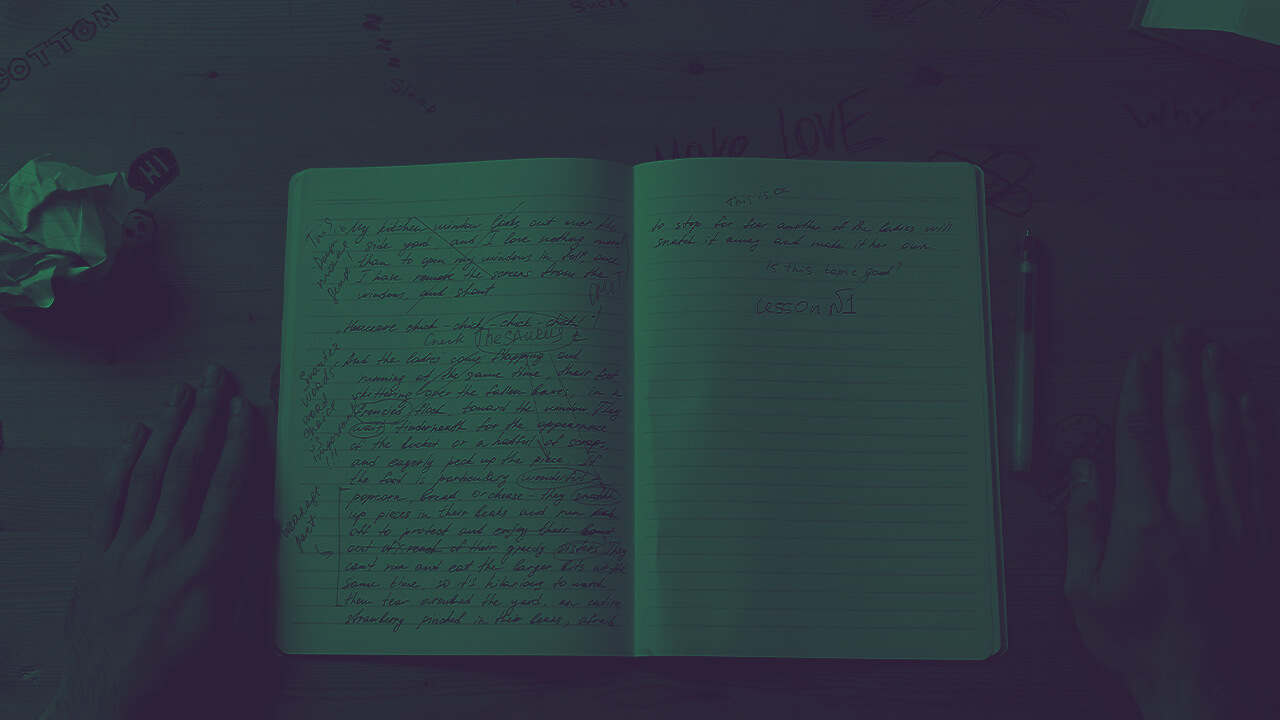 COTTON
Sleep
HI
Make LOVE
Why...
This is
My kitchen window looks out over the
side yard and I love nothing more
than to open my windows in fall once
I have remove the screens from the
windows and shout.
OMIT
Heeeere chick-chick-chick-chick!
Check Thesaurus
And the ladies come flapping and
running at the same time their feet
skittering over the fallen leaves, in a
frenzied flock, toward the window They
wait underneath for the appearance
of the bucket or a hadful of scraps,
and eagerly peck up the piece. If
the food is particullary wonderful -
popcorn, bread, or cheese - they snatch
up pieces in their beaks and run
off to protest and enjoy their
out of reach of their greedy sisters They
can't run and eat the larger bits at the
same time, so it's hilarious to watch
them tear around the yard, an entire
strawberry pinched in their beaks, afraid
Smarter
words:
word
choice
is
important
!!!
Weakest
part
This is
to stop for fear another of the ladies will
snatch it away and make it her own.
Is this topic good?
Lesson №1